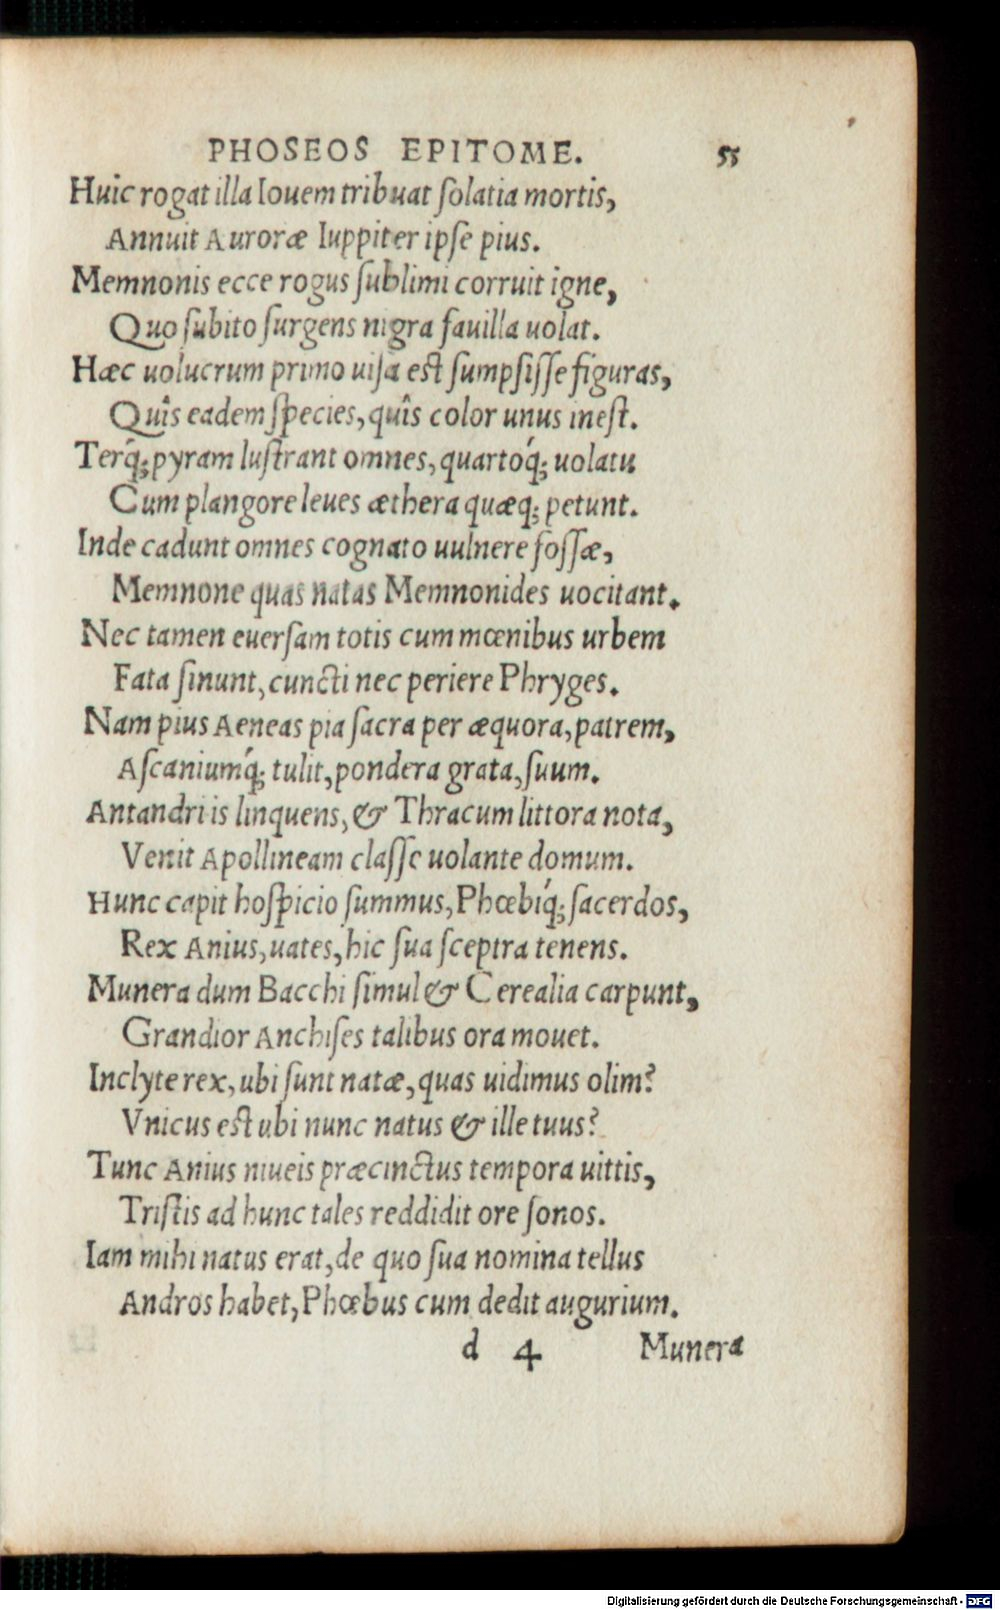 PHOSEOS EPITOME. 55
Huic rogat illa Iouem tribuat ſolatia mortis,
Annuit Auroræ Iuppiter ipſe pius.
Memnonis ecce rogus ſublimi corruit igne,
Quo ſubito ſurgens nigra fauilla uolat.
Hæc uolucrum primo uiſa eſt ſumpſiſſe figuras,
Quîs eadem ſpecies, quîs color unus ineſt.
Terq́; pyram luſtrant omnes, quartoq́; uolatu
Cum plangore leues æthera quæq; petunt.
Inde cadunt omnes cognato uulnere foſſæ,
Memnone quas natas Memnonides uocitant.
Nec tamen euerſam totis cum mœnibus urbem
Fata ſinunt, cuncti nec periere Phryges.
Nam pius Aeneas pia ſacra per æquora, patrem,
Aſcaniumq́; tulit, pondera grata, ſuum.
Antandri is linquens, & Thracum littora nota,
Venit Apollineam claſſe uolante domum.
Hunc capit hoſpicio ſummus, Phœbiq́; ſacerdos,
Rex Anius, uates, hic ſua ſceptra tenens.
Munera dum Bacchi ſimul & Cerealia carpunt,
Grandior Anchiſes talibus ora mouet.
Inclyte rex, ubi ſunt natæ, quas uidimus olim?
Vnicus eſt ubi nunc natus & ille tuus?
Tunc Anius niueis præcinctus tempora uittis,
Triſtis ad hunc tales reddidit ore ſonos.
Iam mihi natus erat, de quo ſua nomina tellus
Andros habet, Phœbus cum dedit augurium.
d 4 Munera
Digitalisierung gefördert durch die Deutsche Forschungsgemeinschaft - DFG